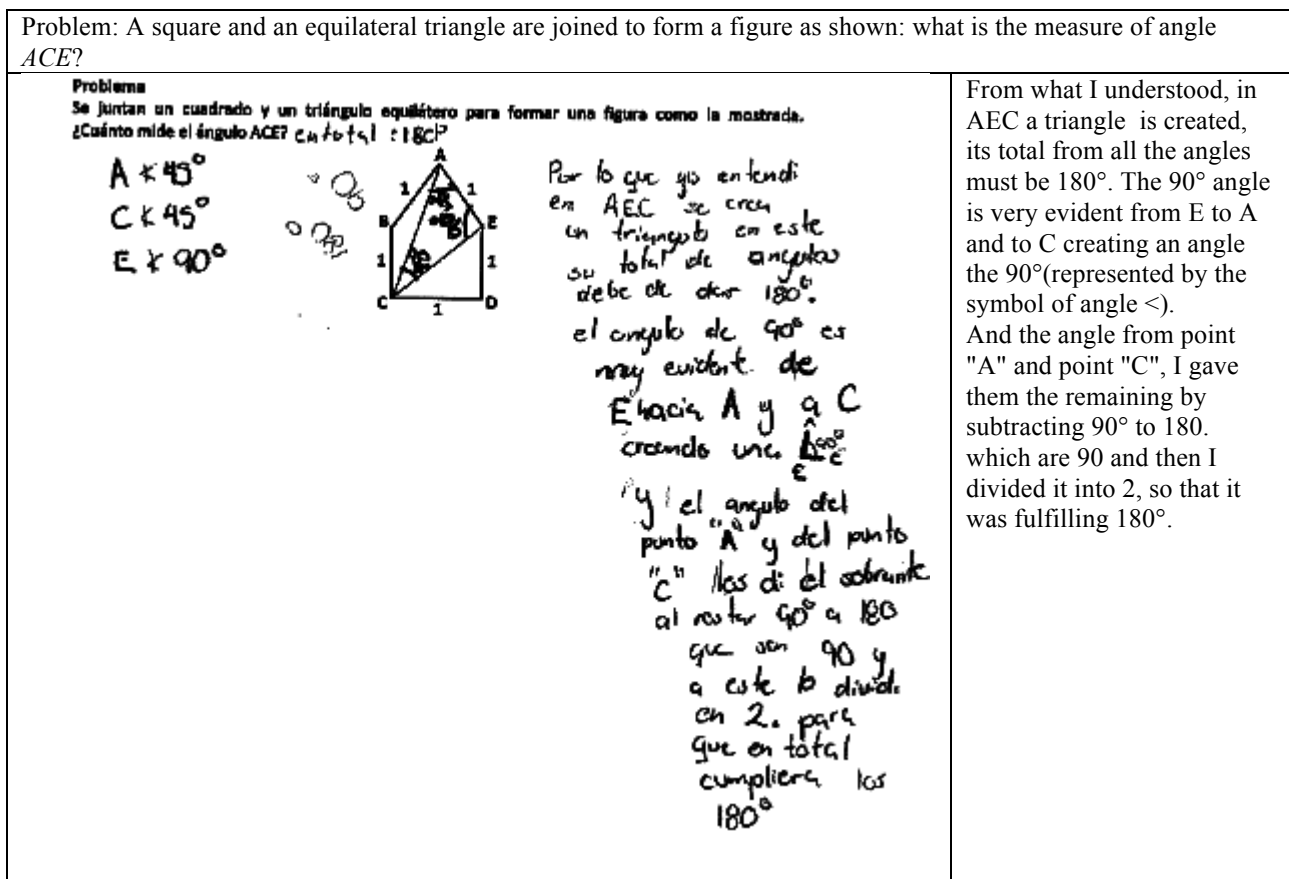 Problem: A square and an equilateral triangle are joined to form a figure as shown: what is the measure of angle
ACE?
Problema
Se juntan un cuadrado y un triángulo equilátero para formar una figura como la mostrada.
¿Cuánto mide el ángulo ACE? en total : 180°
A ∢ 45°
C ∢ 45°
E ∢ 90°
A
1 1
B E
1 1
C D
1
Por lo que yo entendi
en AEC se crea
un triangulo en este
su total de angulos
debe de dar 180°.
el angulo de 90° es
muy evidente de
E hacia A y a C
creando una A 90° C
E
y el angulo del
punto "A" y del punto
"C" les di el sobrante
al restar 90° a 180
que son 90 y
a este lo dividi
en 2. para
que en total
cumpliera los
180°
From what I understood, in
AEC a triangle is created,
its total from all the angles
must be 180°. The 90° angle
is very evident from E to A
and to C creating an angle
the 90°(represented by the
symbol of angle <).
And the angle from point
"A" and point "C", I gave
them the remaining by
subtracting 90° to 180.
which are 90 and then I
divided it into 2, so that it
was fulfilling 180°.